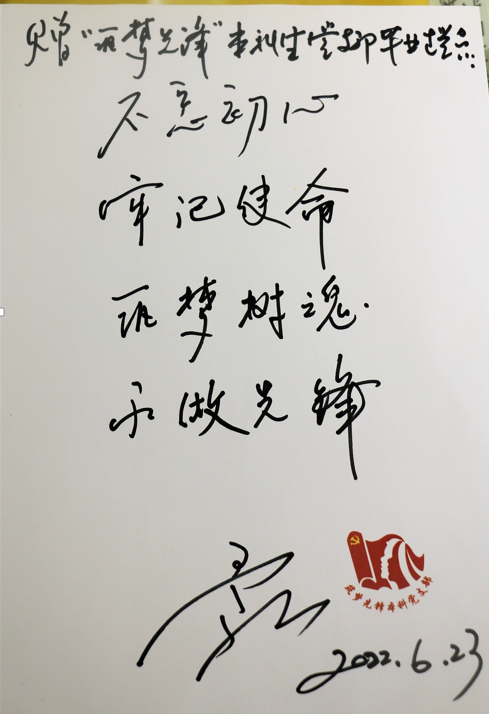 贈"筑梦先锋"本科生党支部毕业党员:
不忘初心
牢记使命
筑梦树魂
永做先锋
筑梦先锋本科党支部
2022.6.23